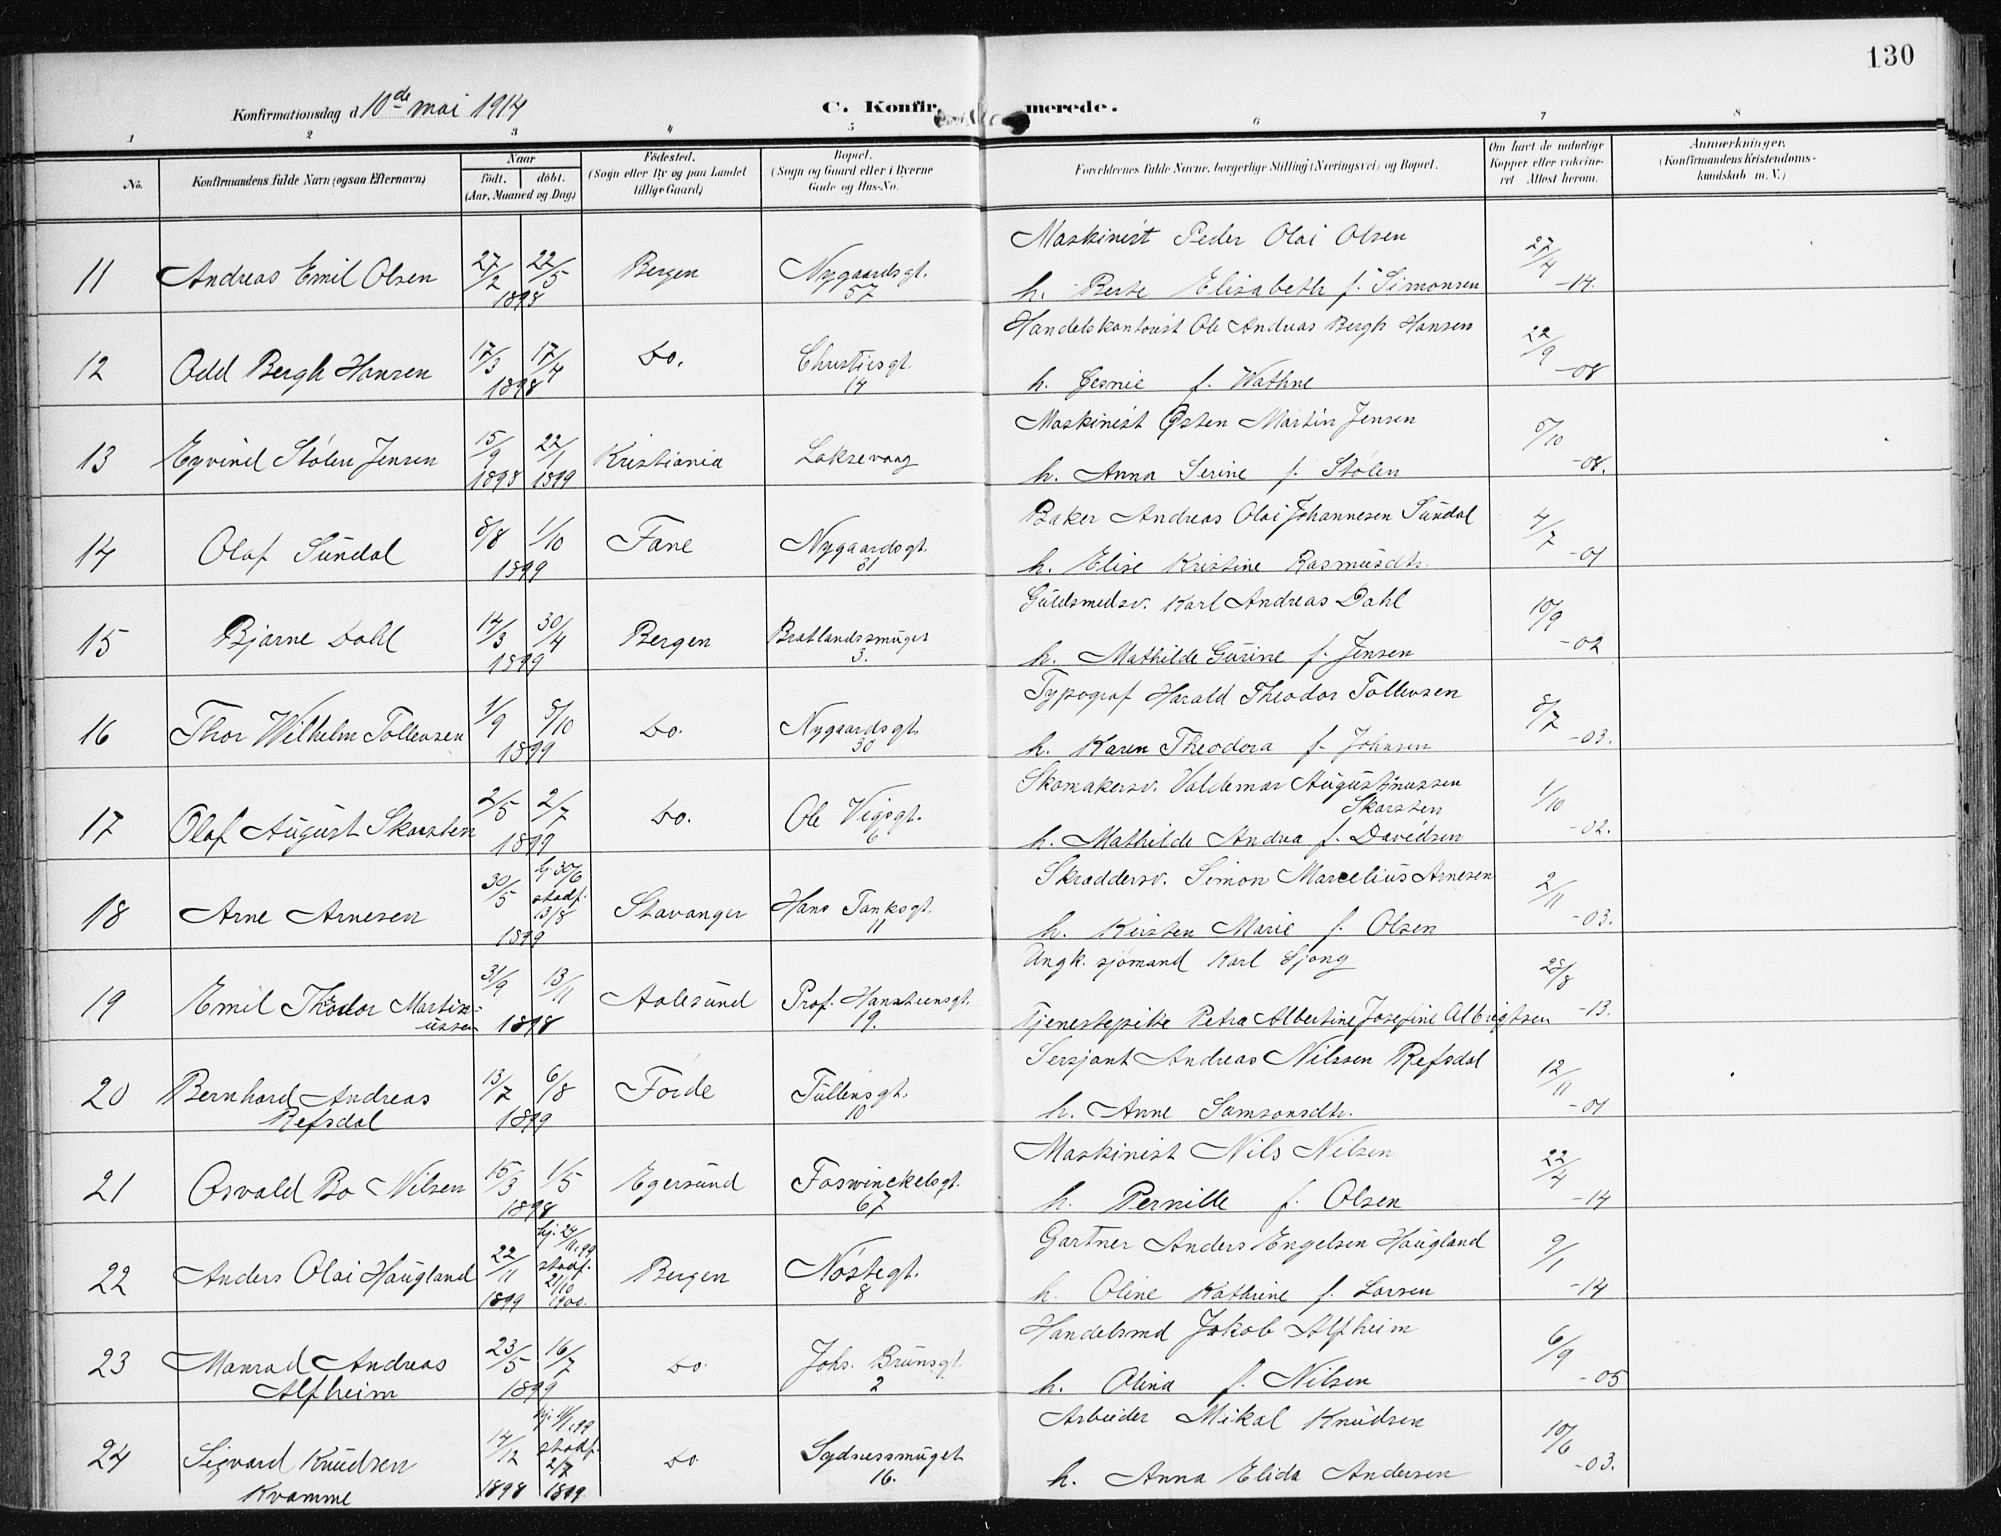 130
Konfirmationsdag d 10de mai 1914
C. Konfir merede.
1 2 3 4 5 6 7 8
No. Konfirmandens fulde Navn (ogsaa Efternavn) Naar født. døbt. (Aar, Maaned og Dag) Fødested. (Sogn eller By og paa Landet tillige Gaard) Bopæl. (Sogn og Gaard eller i Byerne Gade og Hus-No. Forældrenes fulde Navne, borgerlige Stilling (Næringsvei) og Bopæl. Om havt de naturlige Kopper eller vakcineret Attest herom. Anmærkninger. (Konfirmandens Kristendomskundskab m. V.)
11 Andreas Emil Olsen 27/2 22/5 1898 Bergen Nygaardsgt. 57 Maskinist Peder Olai Olsen 27/4 -14.
h. Berte Elisabeth f. Simonsen
12 Odd Bergh Hansen 17/3 17/4 1898 Do. Christiesgt. 14 Handelskontorist Ole Andreas Bergh Hansen 22/9 -08
h. Gesnie f. Wathne
13 Eyvind Stølen Jensen 15/9 1898 22/1 1899 Kristiania Laksevaag Maskinist Østen Martin Jensen 5/10 -08.
h. Anna Serine f. Stølen
14 Olaf Sundal 8/8 1/10 1899 Fane Nygaardsgt. 31 Baker Andreas Olai Johannesen Sundal 4/7 -01
h. Elise Kristine Rasmusdtr.
15 Bjarne Dahl 14/3 30/4 1899 Bergen Bratlandssmuget 3. Guldsmedsv. Karl Andreas Dahl 10/9 -02
h. Mathilde Gurine f. Jensen
16 Thor Wilhelm Tollevsen 1/9 8/10 1899 Do. Nygaardsgt. 30 Typograf Harald Theodor Tollevsen 8/7 -03.
h. Karen Theodora f. Johnsen
17 Olaf August Skarsten 2/5 2/7 1899 Do. Ole Vigsgt. 6 Skomakersv. Valdemar Augustinussen
Skarsten 1/10 -02.
h. Mathilde Andrea f. Davidsen
18 Arne Arnesen 30/5 hj 30/6 stadf. 13/8 1899 Stavanger Hans Tanksgt. 11 Skræddersv. Simon Marcelius Arnesen 2/11 -03.
h. Kirsten Marie f. Olsen
19 Emil Theodor Martinussen 31/9 13/11 1898 Aalesund Prof. Hansteensgt. 19. Ungk. sjømand Karl Sjong 28/8 -13.
Tjenestepike Petra Albertine Josefine Albrigtsen
20 Bernhard Andreas Refsdal 13/7 6/8 1899 Førde Tullinsgt. 10 Sersjant Andreas Nilssen Refsdal 12/11 -01
h. Anne Samsonsdtr.
21 Osvald Bo Nilsen 15/3 1/5 1898 Egersund Foswinckelsgt. 67 Maskinist Nils Nilsen 22/4 -14
h. Pernille f. Olsen
22 Anders Olai Haugland 22/11 1899 hj. 24/11.99 stadf. 21/10 1900. Bergen Nøstegt. 8 Gartner Anders Engelsen Haugland 9/1 -14
h. Oline Kathrine f. Larsen
23 Manrad Andreas Alfheim 23/5 16/7 1899 Do. Johs. Brunsgt. 2 Handelsmd Jakob Alfheim 6/9 -05
h. Olina f. Nilsen
24 Sigvard Knudsen Kvamme 14/12 1898 hj. 11/1.99 stadf. 2/7 1899. Do. Sydnessmuget 16. Arbeider Mikal Knudsen 10/6 -03.
h. Anna Elida Andersen